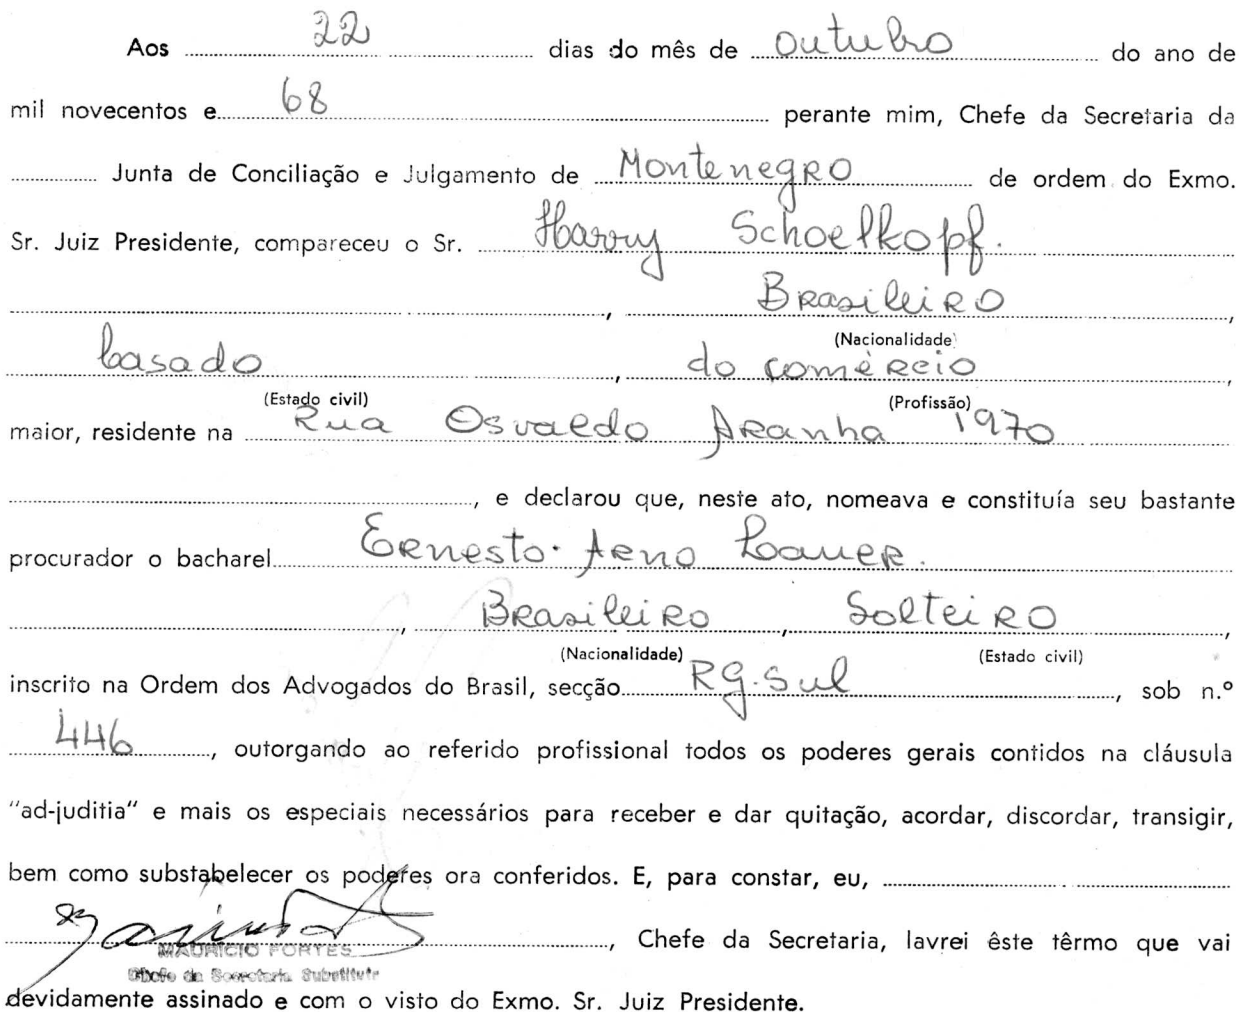 Aos 22 dias do mês de outubro do ano de
mil novecentos e 68 perante mim, Chefe da Secretaria da
Junta de Conciliação e Julgamento de Montenegro de ordem do Exmo.
Sr. Juiz Presidente, compareceu o Sr. Harry Schoelkopf.
, Brasileiro,
(Nacionalidade)
Casado, do comércio,
(Estado civil) (Profissão)
maior, residente na Rua Osvaldo Aranha 1970
, e declarou que, neste ato, nomeava e constituía seu bastante
procurador o bacharel Ernesto Arno Lauer.
, Brasileiro, Solteiro,
(Nacionalidade) (Estado civil)
inscrito na Ordem dos Advogados do Brasil, secção RG. Sul, sob n.º
446, outorgando ao referido profissional todos os poderes gerais contidos na cláusula
"ad-juditia" e mais os especiais necessários para receber e dar quitação, acordar, discordar, transigir,
bem como substabelecer os poderes ora conferidos. E, para constar, eu,
, Chefe da Secretaria, lavrei êste têrmo que vai
MAURICIO FORTES
Chefe da Secretaria Substituto
devidamente assinado e com o visto do Exmo. Sr. Juiz Presidente.